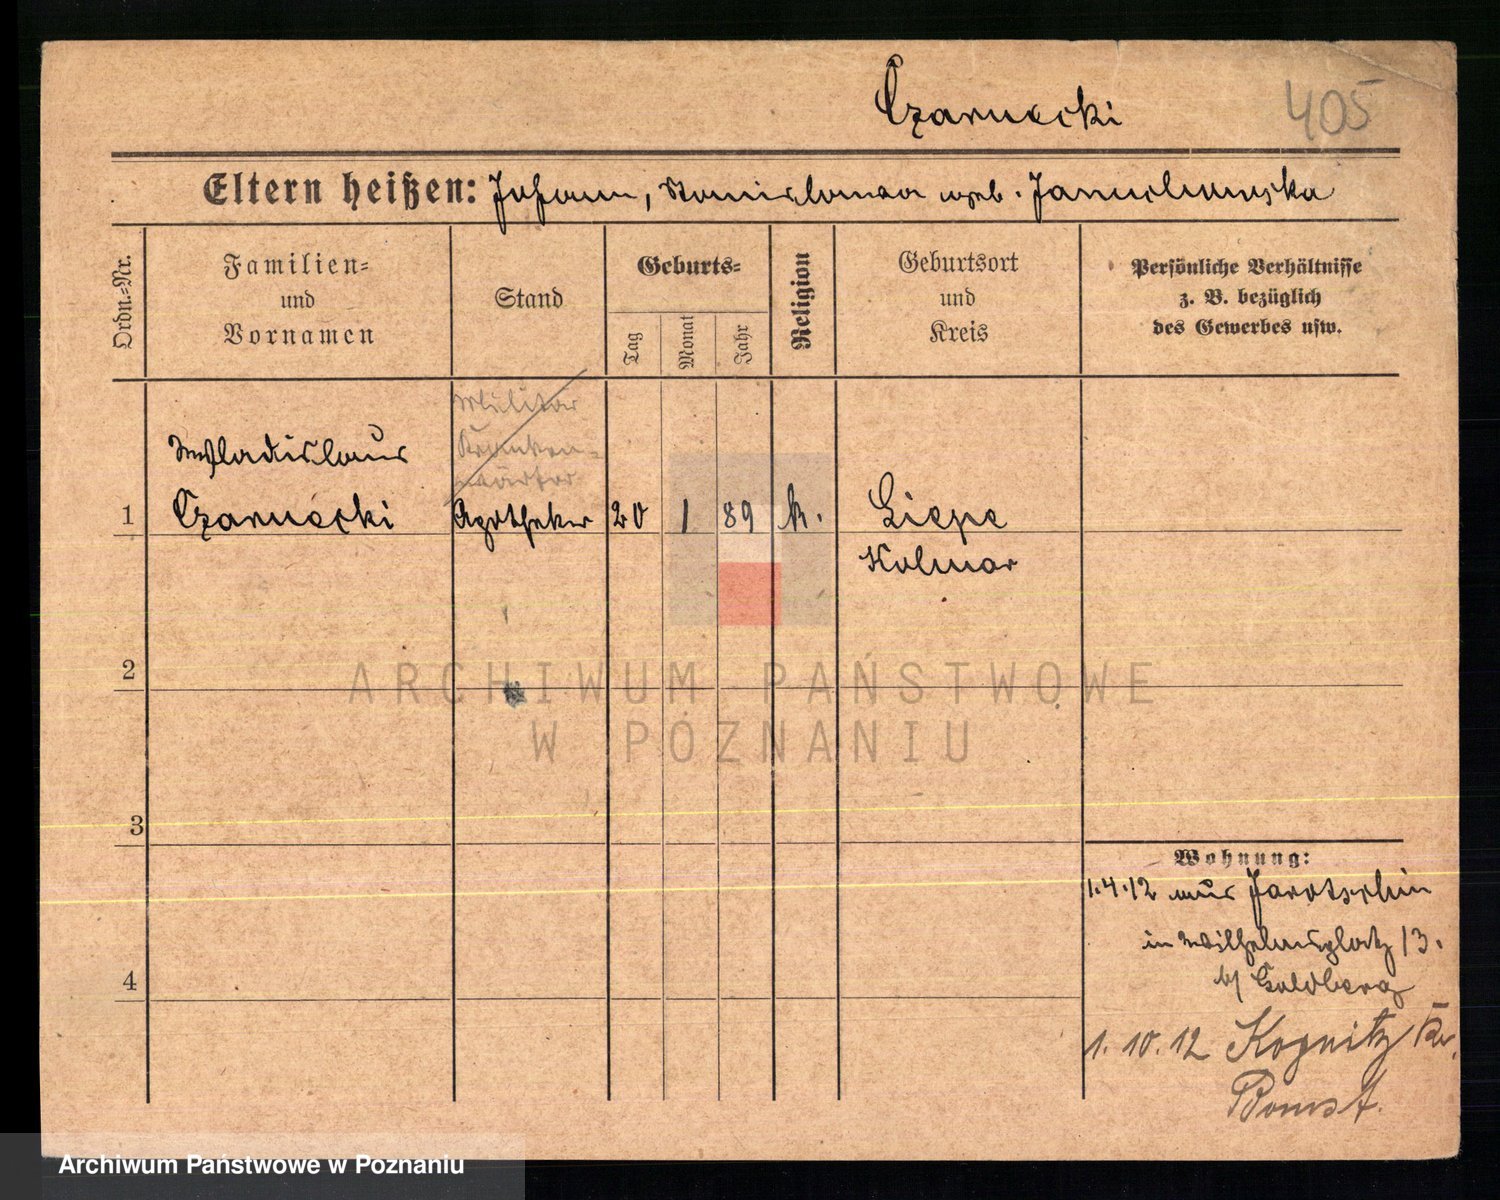 Czarnecki
405
Eltern heißen: Johann, Stanislawa geb.
Ordn.-Nr.
Familien-
und
Vornamen
Stand
Geburts-
Tag
Monat
Jahr
Religion
Geburtsort
und
Kreis
Persönliche Verhältnisse
z. B. bezüglich
des Gewerbes usw.
Militär
Kranken-
wärter
Wladislaus
1 Czarnecki Apotheker 20 1 89 k. Liepe
Kolmar
2
3
4
Wohnung:
1.4.12 aus Jarotschin
in Wilhelmsplatz 13.
b/ Goldberg
1.10.12 Kopnitz Kr.
Bomst.
ARCHIWUM PAŃSTWOWE
W POZNANIU
Archiwum Państwowe w Poznaniu